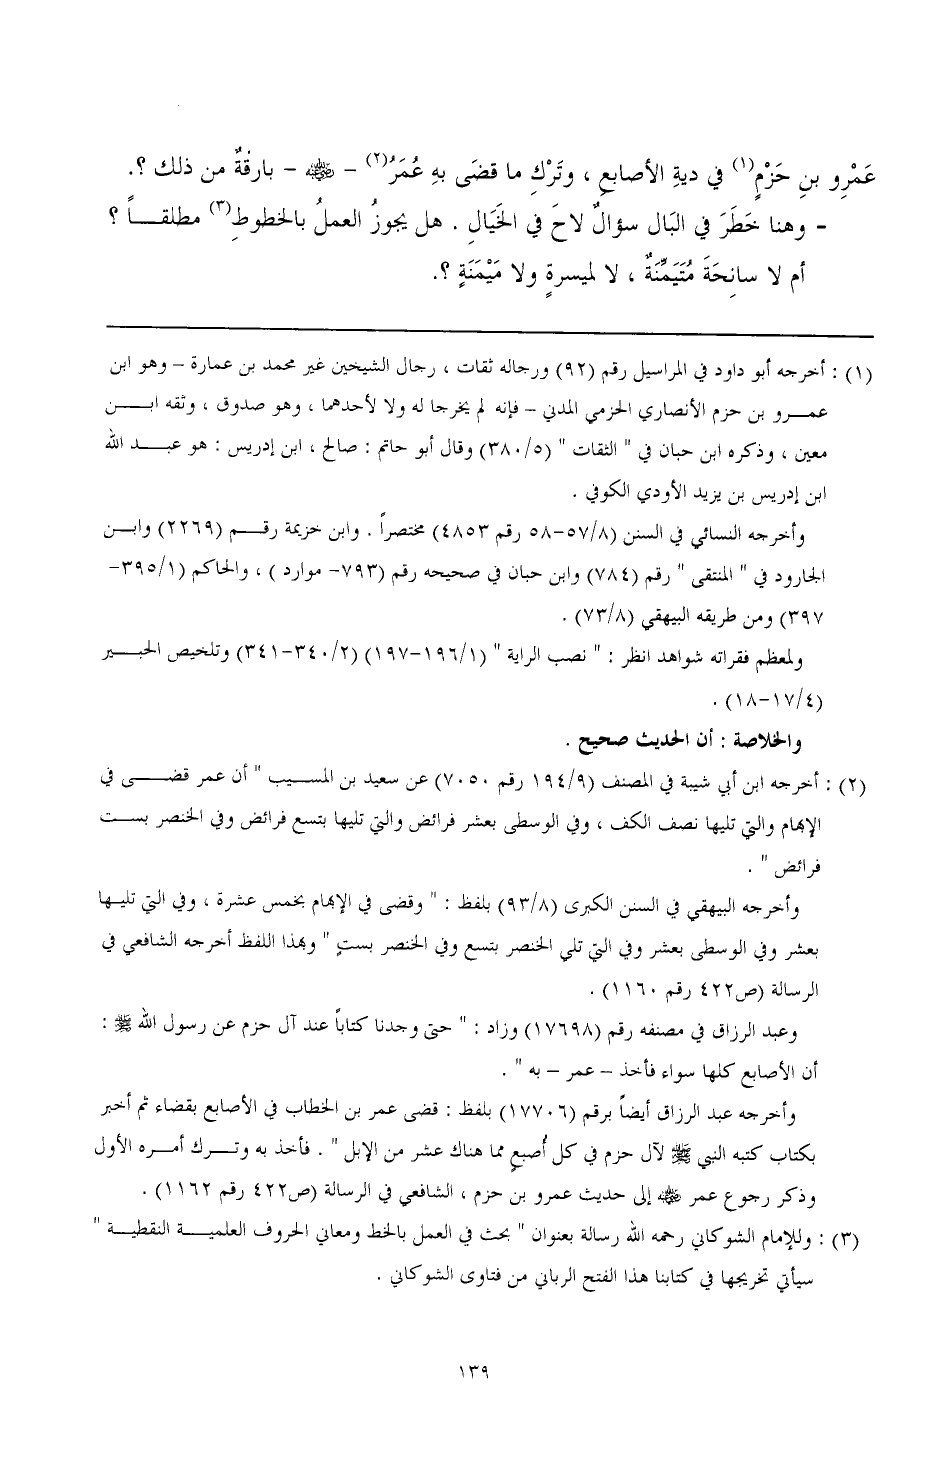 عَمْرِو بنِ حَزْمٍ(١) في ديةِ الأصابعِ ، وتَرْكِ ما قضَى بهِ عُمَرُ(٢) – رضي الله عنه – بارقةٌ من ذلك ؟.
- وهنا خَطَرَ في البَال سؤالٌ لاحَ في الخَيَالِ . هل يجوزُ العملُ بالخطوطِ(٣) مطلقـــاً ؟
أم لا سانِحَةَ مُتَيَمِّنَةٌ ، لا لميسرةٍ ولا مَيْمَنَةٍ ؟.
(١) : أخرجه أبو داود في المراسيل رقم (٩٢) ورجاله ثقات ، رجال الشيخين غير محمد بن عمارة – وهو ابن
عمـــرو بن حزم الأنصاري الحزمي المدني – فإنه لم يخرجا له ولا لأحدهما ، وهو صدوق ، وثقه ابـــن
معين ، وذكره ابن حبان في " الثقات " (٣٨٠/٥) وقال أبو حاتم : صالح ، ابن إدريس : هو عبـــد الله
ابن إدريس بن يزيد الأودي الكوفي .
وأخرجه النسائي في السنن (٥٧/٨-٥٨ رقم ٤٨٥٣) مختصراً . وابن خزيمة رقـــم (٢٢٦٩) وابـــن
الجارود في " المنتقى " رقم (٧٨٤) وابن حبان في صحيحه رقم (٧٩٣- موارد ) ، والحاكم (٣٩٥/١-
٣٩٧) ومن طريقه البيهقي (٧٣/٨) .
ولمعظم فقراته شواهد انظر : " نصب الراية " (١٩٦/١-١٩٧) (٣٤٠/٢-٣٤١) وتلخيص الحبـــير
(١٧/٤-١٨) .
والخلاصة : أن الحديث صحيح .
(٢) : أخرجه ابن أبي شيبة في المصنف (١٩٤/٩ رقم ٧٠٥٠) عن سعيد بن المسيب " أن عمر قضـــى في
الإبهام والتي تليها نصف الكف ، وفي الوسطى بعشر فرائض والتي تليها بتسع فرائض وفي الخنصر بســت
فرائض " .
وأخرجه البيهقي في السنن الكبرى (٩٣/٨) بلفظ : " وقضى في الإبهام بخمس عشرة ، وفي التي تليـها
بعشر وفي الوسطى بعشر وفي التي تلي الخنصر بتسع وفي الخنصر بستٍ " وبهذا اللفظ أخرجه الشافعي في
الرسالة (ص٤٢٢ رقم ١١٦٠) .
وعبد الرزاق في مصنفه رقم (١٧٦٩٨) وزاد : " حتى وجدنا كتاباً عند آل حزم عن رسول الله ﷺ :
أن الأصابع كلها سواء فأخذ – عمر – به " .
وأخرجه عبد الرزاق أيضاً برقم (١٧٧٠٦) بلفظ : قضى عمر بن الخطاب في الأصابع بقضاء ثم أخبر
بكتاب كتبه النبي ﷺ لآل حزم في كل أُصبعٍ مما هناك عشر من الإبل " . فأخذ به وتـــرك أمـره الأول
وذكر رجوع عمر رضي الله عنه إلى حديث عمرو بن حزم ، الشافعي في الرسالة (ص٤٢٢ رقم ١١٦٢) .
(٣) : وللإمام الشوكاني رحمه الله رسالة بعنوان " بحث في العمل بالخط ومعاني الحروف العلميـــة النقطيـــة "
سيأتي تخريجها في كتابنا هذا الفتح الرباني من فتاوى الشوكاني .
١٣٩